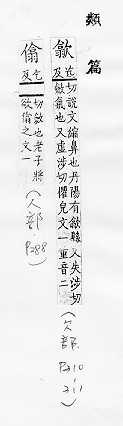 類篇
歙 迄及切說文縮鼻也丹陽有歙縣又失涉切
歙氣也又虛涉切懼皃文一重音二
(欠部 P310-311)
㒆 迄及切斂也老子將
欲㒆之文一
(人部 P288)